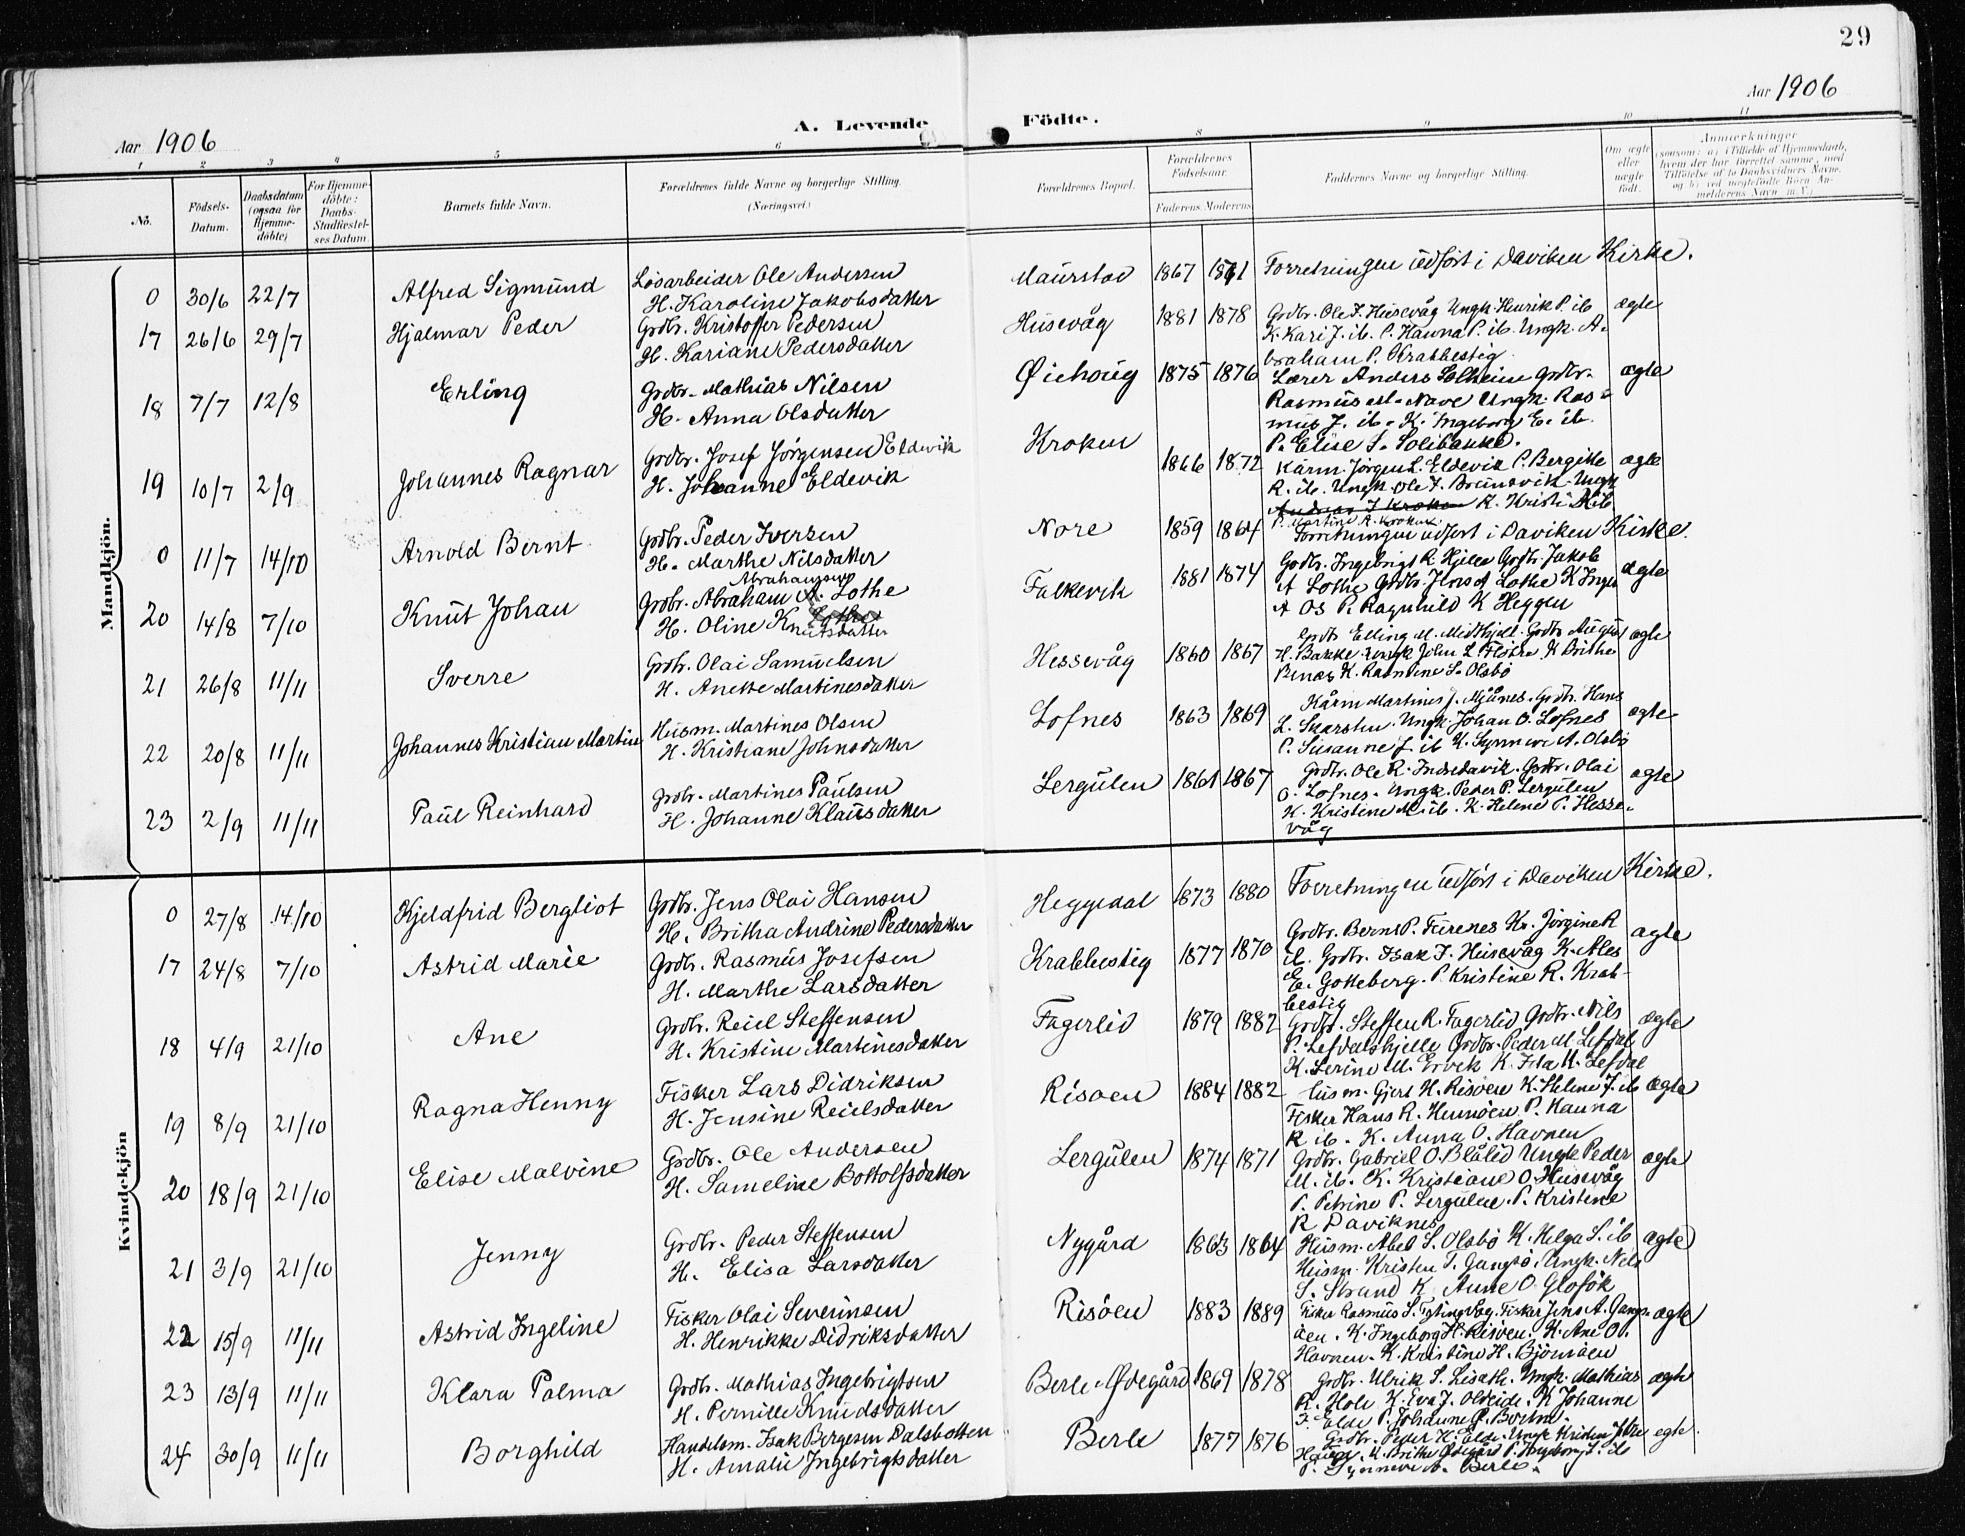 29
Aar 1906
A. Levende
Födte.
Aar 1906
1 2 3 4 5 6 8 9 10 11
Nö.
Födsels-
Datum.
Daabsdatum
(ogsaa for
Hjemme-
döbte)
For Hjemme-
döbte:
Daabs-
Stadfæstel-
ses Datum
Barnets fulde Navn.
Forældrenes fulde Navne og borgerlige Stilling.
(Næringsvei.)
Forældrenes Bopæl.
Forældrenes
Födselsaar.
Faderens. Moderens.
Faddernes Navne og borgerlige Stilling.
Om ægte
eller
uægte
födt.
Anmærkninger
(saasom: a) i Tilfælde af Hjemmedaab,
hvem der har forrettet samme, med
Tilföielse af to Daabsvidners Navne,
og b) ved uægtefödte Börn An-
melderens Navn m. V.)
Mandkjön.
0 30/6 22/7 Alfred Sigmund
Løsarbeider Ole Andersen
H. Karoline Jakobsdatter
Maurstad 1867 1871 Forretningen udført i Daviken Kirke.
17 26/6 29/7 Hjalmar Peder
Grdbr. Kristoffer Pedersen
H. Kariane Pedersdatter
Husevåg 1881 1878
Grdbr. Ole J. Husevåg Ungk. Henrik P. ib
K. Kari J. ib. P. Hanna P. ib. Ungk. A-
braham P. Krabbestig
ægte
18 7/7 12/8 Erling
Grdbr. Mathias Nilsen
H. Anna Olsdatter
Øiehoug 1875 1876
Lærer Anders Solheim Grdbr.
Rasmus Nave Ungk. Ras-
mus J. ib. K. Ingeborg E. ib.
P. Elise S. Solibakke.
ægte
19 10/7 2/9 Johannes Ragnar
Grdbr. Josef Jørgensen Eldevik
H. Johanne Eldevik
Kroken 1866 1872
Kårm. Jørgen L. Eldevik P. Bergitte
R. ib. Ungk. Ole J. Brunsvik. Ungk
Andreas J Kroken K. Kristi A ib.
P. Martine A. Kroken.
ægte
0 11/7 14/10 Arnold Bernt
Grdbr. Peder Iversen
H. Marthe Nilsdatter
Nore 1859 1864 Forretningen udført i Daviken Kirke.
20 14/8 7/10 Knut Johan
Abrahamsen
Grdbr. Abraham A. Lothe
H. Oline Knutsdatter
Falkevik 1881 1874
Grdbr. Ingebrigt R. Hjelle Grdbr. Jakob
A Lothe Grdbr. Jens A Lothe K Inger
A Os P. Ragnhild K Heggen
ægte
21 26/8 11/11 Sverre
Grdbr. Olai Samuelsen
H. Anette Martinesdatter
Hessevåg 1860 1867
Grdbr Elling M. Midthjell. Grdbr August
H. Bakke. Ungk John L. K Brithe
K. Rasmine S. Olsbø
ægte
22 20/8 11/11 Johannes Kristian Martin
Husm. Martines Olsen
H. Kristiane Johnsdatter
Lofnes 1863 1869
Kårm Martines J. Myrnes. Grdbr. Hans
L. Skarsten. Ungk. Johan O. Lofnes
P. Susanne J. ib K. Synneve A. Olsbø
ægte
23 2/9 11/11 Paul Reinhard
Grdbr. Martines Paulsen
H. Johanne Klausdatter
Lergulen 1861 1867
Grdbr. Ole R. Indredavik. Grdbr. Olai
O. Lofnes. Ungk. Peder P. Lergulen
K. Kristine M. ib. K. Helene P. Hesse-
våg
ægte
Kvindekjön
0 27/8 14/10 Kjeldfrid Bergliot
Grdbr. Jens Olai Hansen
H. Britha Andrine Pedersdatter
Heggedal 1873 1880 Forretningen udført i Daviken Kirke.
17 24/8 7/10 Astrid Marie
Grdbr. Rasmus Josefsen
H. Marthe Larsdatter
Krabbestig 1877 1870
Grdbr. Bernt P. Furenes Kr. Jørgine R
ib. Grdbr. Isak J. Husevåg K. Ales
E. Gotteberg. P. Kristine R. Krab-
bestig
ægte
18 4/9 21/10 Ane
Grdbr. Reiel Steffensen
H. Kristine Martinesdatter
Fagerlid 1879 1882
Grdbr. Steffen R. Fagerlid Grdbr. Nils
P. Lefdalshjelle Grdbr. Peder M. Lefdal
K. Serine M. Ervik K. Ida K. Lefdal
ægte
19 8/9 21/10 Ragna Henny
Fisker Lars Didriksen
H. Jensine Reielsdatter
Risøen 1884 1882
Husm. Gjert H. Risøen K. Helene J. ib
Fisker Hans R. Hennøen P. Hanna
R ib. K. Anna O. Havnen
ægte
20 18/9 21/10 Elise Malvine
Grdbr. Ole Andersen
H. Sameline Bottolfsdatter
Lergulen 1874 1871
Grdbr. Gabriel O. Blålid Ungk Peder
M. ib. K. Kristiane O. Husevåg
P. Petrine P. Lergulen. P. Kristine
R Daviknes
ægte
21 3/9 21/10 Jenny
Grdbr. Peder Steffensen
H. Elisa Larsdatter
Nygård 1863 1864
Husm. Abel S. Olsbø K. Helga S. ib
Husm. Kristen T. Gangsø. Ungk. Nils
S. Strand K. Anne O. Glofök
ægte
22 15/9 11/11 Astrid Ingeline
Fisker Olai Severinsen
H. Henrikke Didriksdatter
Risöen 1883 1889
Fisker Rasmus S. Tytingvåg. Fisker Jens A. Gangs-
øen. K. Ingeborg H. Risøen. K. Ane O.
Havnen. K. Kristine H. Bjørnøen
ægte
23 13/9 11/11 Klara Palma
Grdbr. Mathias Ingebrigtsen
H. Pernille Knudsdatter
Berle Ødegård 1869 1878
Grdbr. Ulrik S. Lisæth. Ungk. Mathias
R. Hole K. Eva J. Oldeide. K Johanne
J. Elde P. Johanne P. Bortne.
ægte
24 30/9 11/11 Borghild
Handelsm. Isak Bergesen Dalsbotten
H. Amalie Ingebrigtsdatter
Berle 1877 1876
Grdbr. Peder H. Elde. Ungk Kristen
Hauge. K. Brithe Ødegård P. Ingeborg I. ib
P. Synneve A. Berle.
egte.